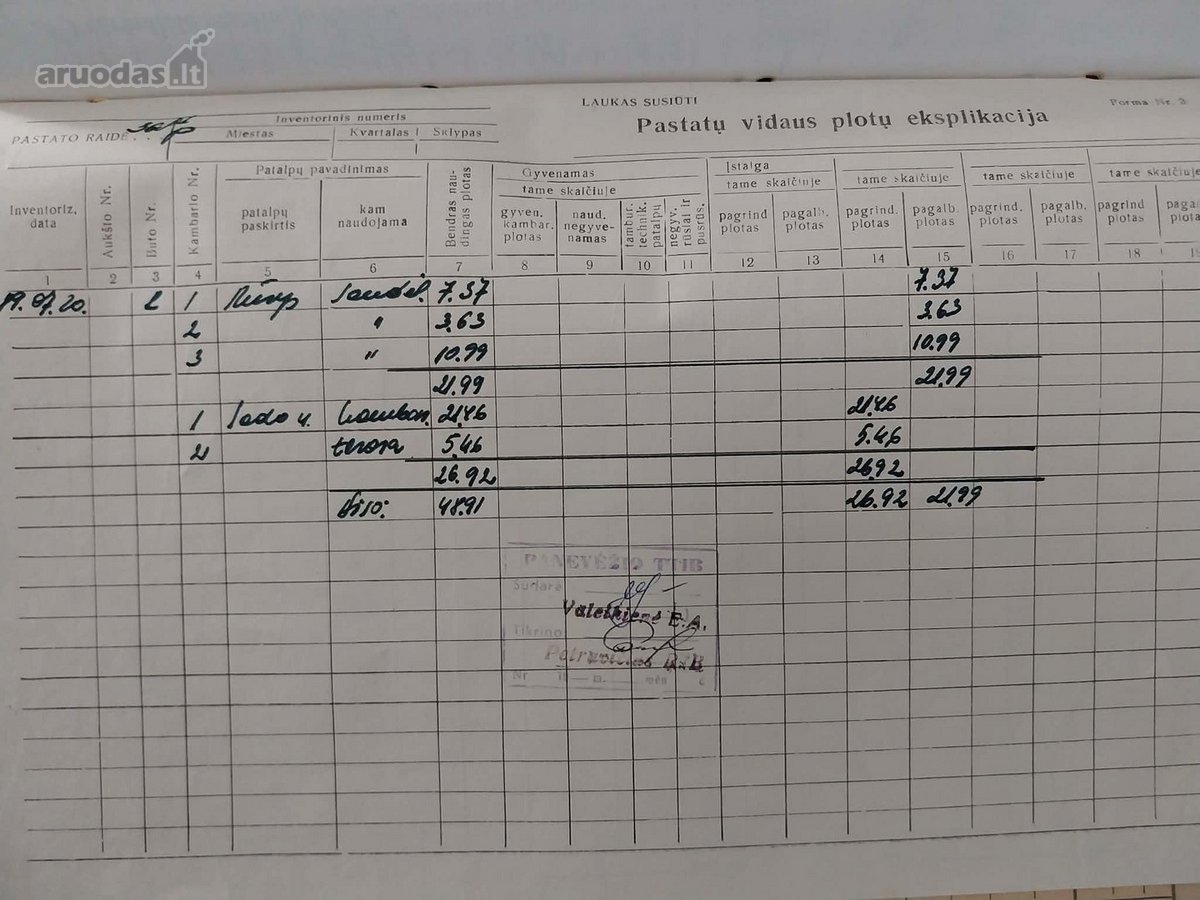 aruodas.lt
LAUKAS SUSIŪTI
Forma Nr. 3
Pastatų vidaus plotų eksplikacija
PASTATO RAIDĖ
Inventorinis numeris
Miestas Kvartalas Sklypas
Inventoriz. data
Aukšto Nr.
Buto Nr.
Kambario Nr.
Patalpų pavadinimas
patalpų paskirtis
kam naudojama
Bendras naudingas plotas
Gyvenamas
tame skaičiuje
gyven. kambar. plotas
naud. negyvenamas
tambur. technik. patalpų
negyv. rūsiai ir pusrūs.
Įstaiga
tame skaičiuje
pagrind. plotas
pagalb. plotas
tame skaičiuje
pagrind. plotas
pagalb. plotas
tame skaičiuje
pagrind. plotas
pagalb. plotas
tame skaičiuje
pagrind plotas
1 2 3 4 5 6 7 8 9 10 11 12 13 14 15 16 17 18
1 Rūsys 7.37 7.37
2 " 3.63 3.63
3 " 10.99 10.99
21.99 21.99
1 Sodo n. 21.46 21.46
2 terasa 5.46 5.46
26.92 26.92
Viso: 48.91 26.92 21.99
PANEVĖŽIO TTIB
Sudarė
Valeikienė E.A.
Tikrino
Nr 19 — m. mėn